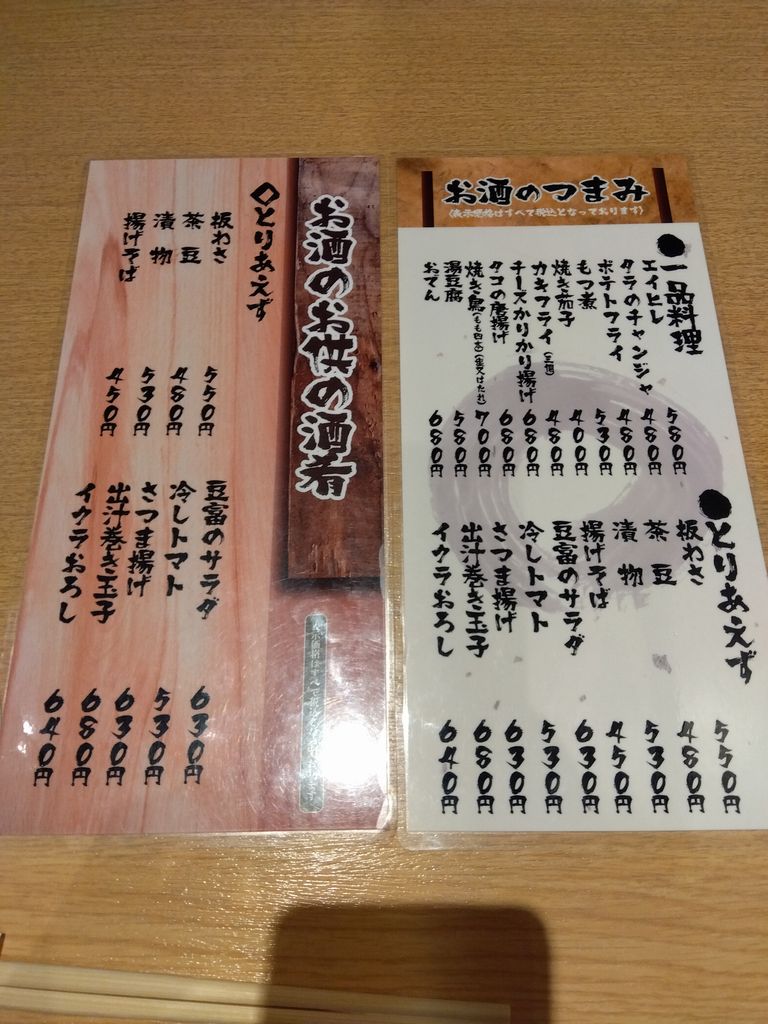 お酒のお供の酒肴
◇とりあえず
板わさ 550円
茶豆 480円
漬物 530円
揚げそば 450円
豆富のサラダ 630円
冷しトマト 530円
さつま揚げ 630円
出汁巻き玉子 680円
イクラおろし 640円
表示価格はすべて
お酒のつまみ
(表示価格はすべて税込となっております)
●一品料理
エイヒレ 580円
タラのチャンジャ 480円
ポテトフライ 480円
もつ煮 530円
焼き茄子 400円
カキフライ(三個) 480円
チーズかりかり揚げ 680円
タコの唐揚げ 680円
焼き鳥(もも四本)(塩又はたれ) 700円
湯豆腐 580円
おでん 680円
●とりあえず
板わさ 550円
茶豆 480円
漬物 530円
揚げそば 450円
豆富のサラダ 630円
冷しトマト 530円
さつま揚げ 630円
出汁巻き玉子 680円
イクラおろし 640円